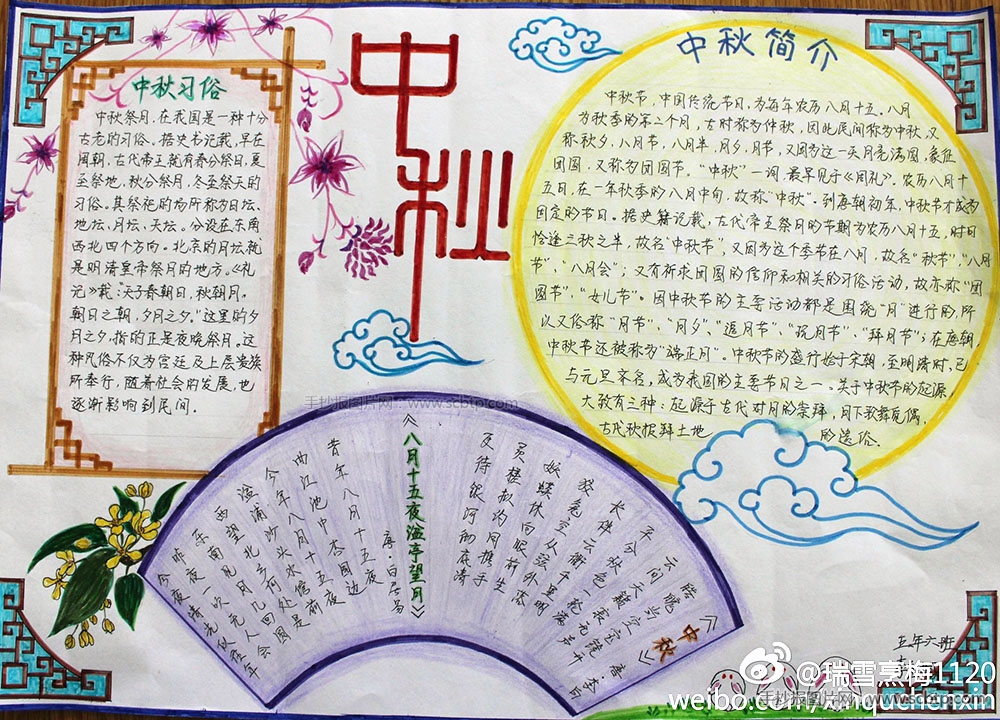 中秋
中秋习俗
中秋祭月，在我国是一种十分
古老的习俗。据史书记载，早在
周朝，古代帝王就有春分祭日，夏
至祭地，秋分祭月，冬至祭天的
习俗。其祭祀的场所称为日坛、
地坛、月坛、天坛。分设在东南
西北四个方向。北京的月坛就
是明清皇帝祭月的地方。《礼
记》载："天子春朝日，秋朝月。
朝日之朝，夕月之夕。"这里的夕
月之夕，指的正是夜晚祭月。这
种风俗不仅为宫廷及上层贵族
所奉行，随着社会的发展，也
逐渐影响到民间．
中秋简介
中秋节，中国传统节日，为每年农历八月十五．八月
为秋季的第二个月，古时称为仲秋，因此民间称为中秋，又
称秋夕，八月节，八月半，月夕，月节，又因为这一天月亮满圆，象征
团圆，又称为团圆节。"中秋"一词，最早见于《周礼》。农历八月十
五日，在一年秋季的八月中旬，故称"中秋"。到唐朝初年，中秋节才成为
固定的节日。据史籍记载，古代帝王祭月的节期为农历八月十五，时日
恰逢三秋之半，故名"中秋节"，又因为这个季节在八月，故名"秋节"，"八月
节"，"八月会"；又有祈求团圆的信仰和相关的习俗活动，故亦称"团
圆节"，"女儿节"。因中秋节的主要活动都是围绕"月"进行的，所
以又俗称"月节"、"月夕"、"追月节"、"玩月节"、"拜月节"；在唐朝，
中秋节还被称为"端正月"。中秋节的盛行始于宋朝，至明清时，已
与元旦齐名，成为我国的主要节日之一。关于中秋节的起源，
大致有三种：起源于古代对月的崇拜，月下歌舞觅偶，
古代秋报拜土地 的遗俗．
《中秋》
唐 李朴
皓魄当空宝镜升
云间仙籁寂无声
平分秋色一轮满
长伴云衢千里明
狡兔空从弦外落
妖蟆休向眼前生
灵槎拟约同携手
更待银河彻底清
《八月十五夜湓亭望月》
唐·白居易
昔年八月十五夜
曲江池中杏园边
今年八月十五夜
湓浦沙头水馆前
西望北立何处是
东南见月几回圆
昨夜一吹元人会
今夜清光似往年
五年六班
手抄报图片网：www.scbtp.com
@瑞雪烹梅1120
手抄报图片网：www.scbtp.com